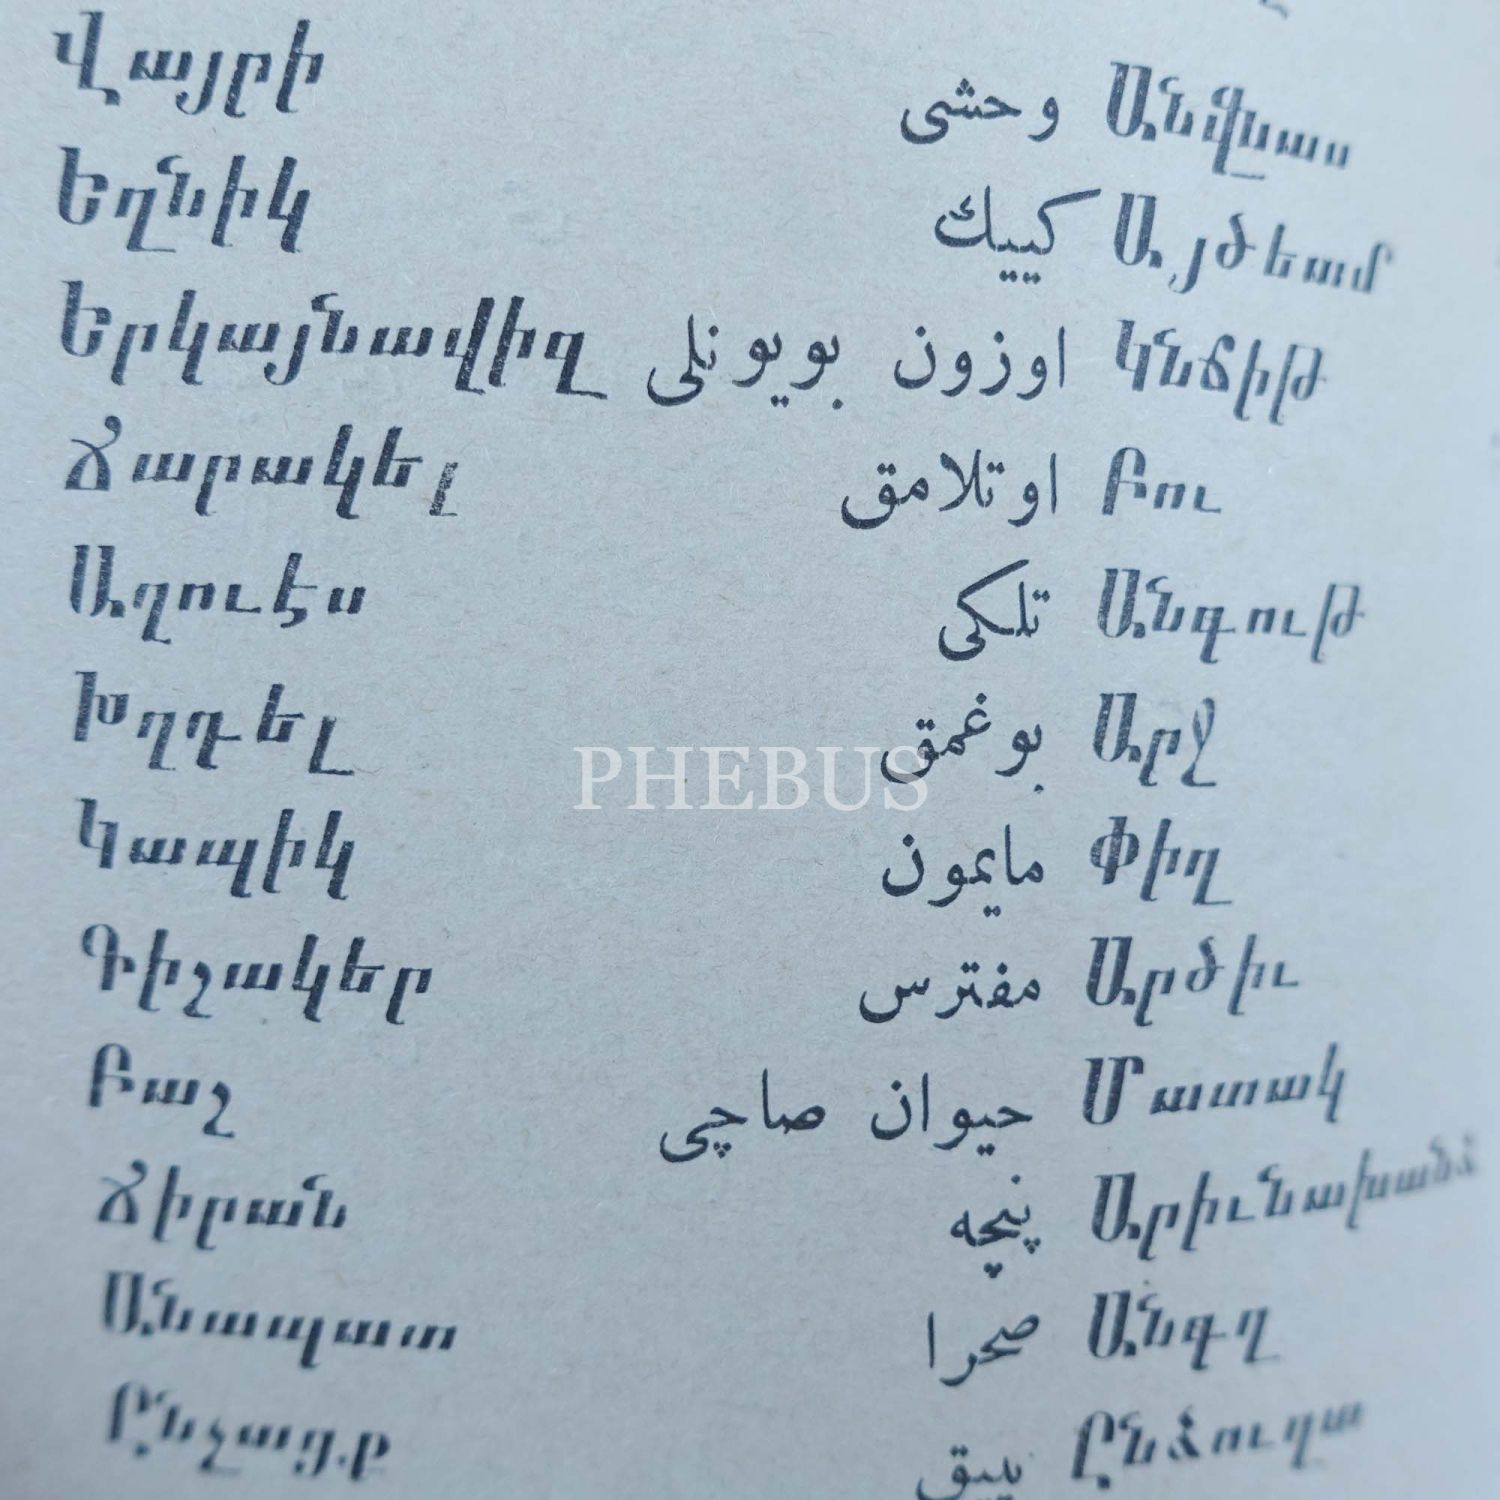 Վայրի وحشی Անվնաս
Եղնիկ كييك Այծեամ
Երկայնավիզ اوزون بويونلی Կնճիթ
Ճարակել اوتلامق Բու
Աղուէս تلکی Անգութ
Խղդել بوغمق Արջ
Կապիկ مايمون Փիղ
PHEBUS
Գիշակեր مفترس Արծիւ
Բաշ حيوان صاچی Մատակ
Ճիրան پنچه Արիւնախանձ
Անապատ صحرا Անգղ
Ընչացք بييق